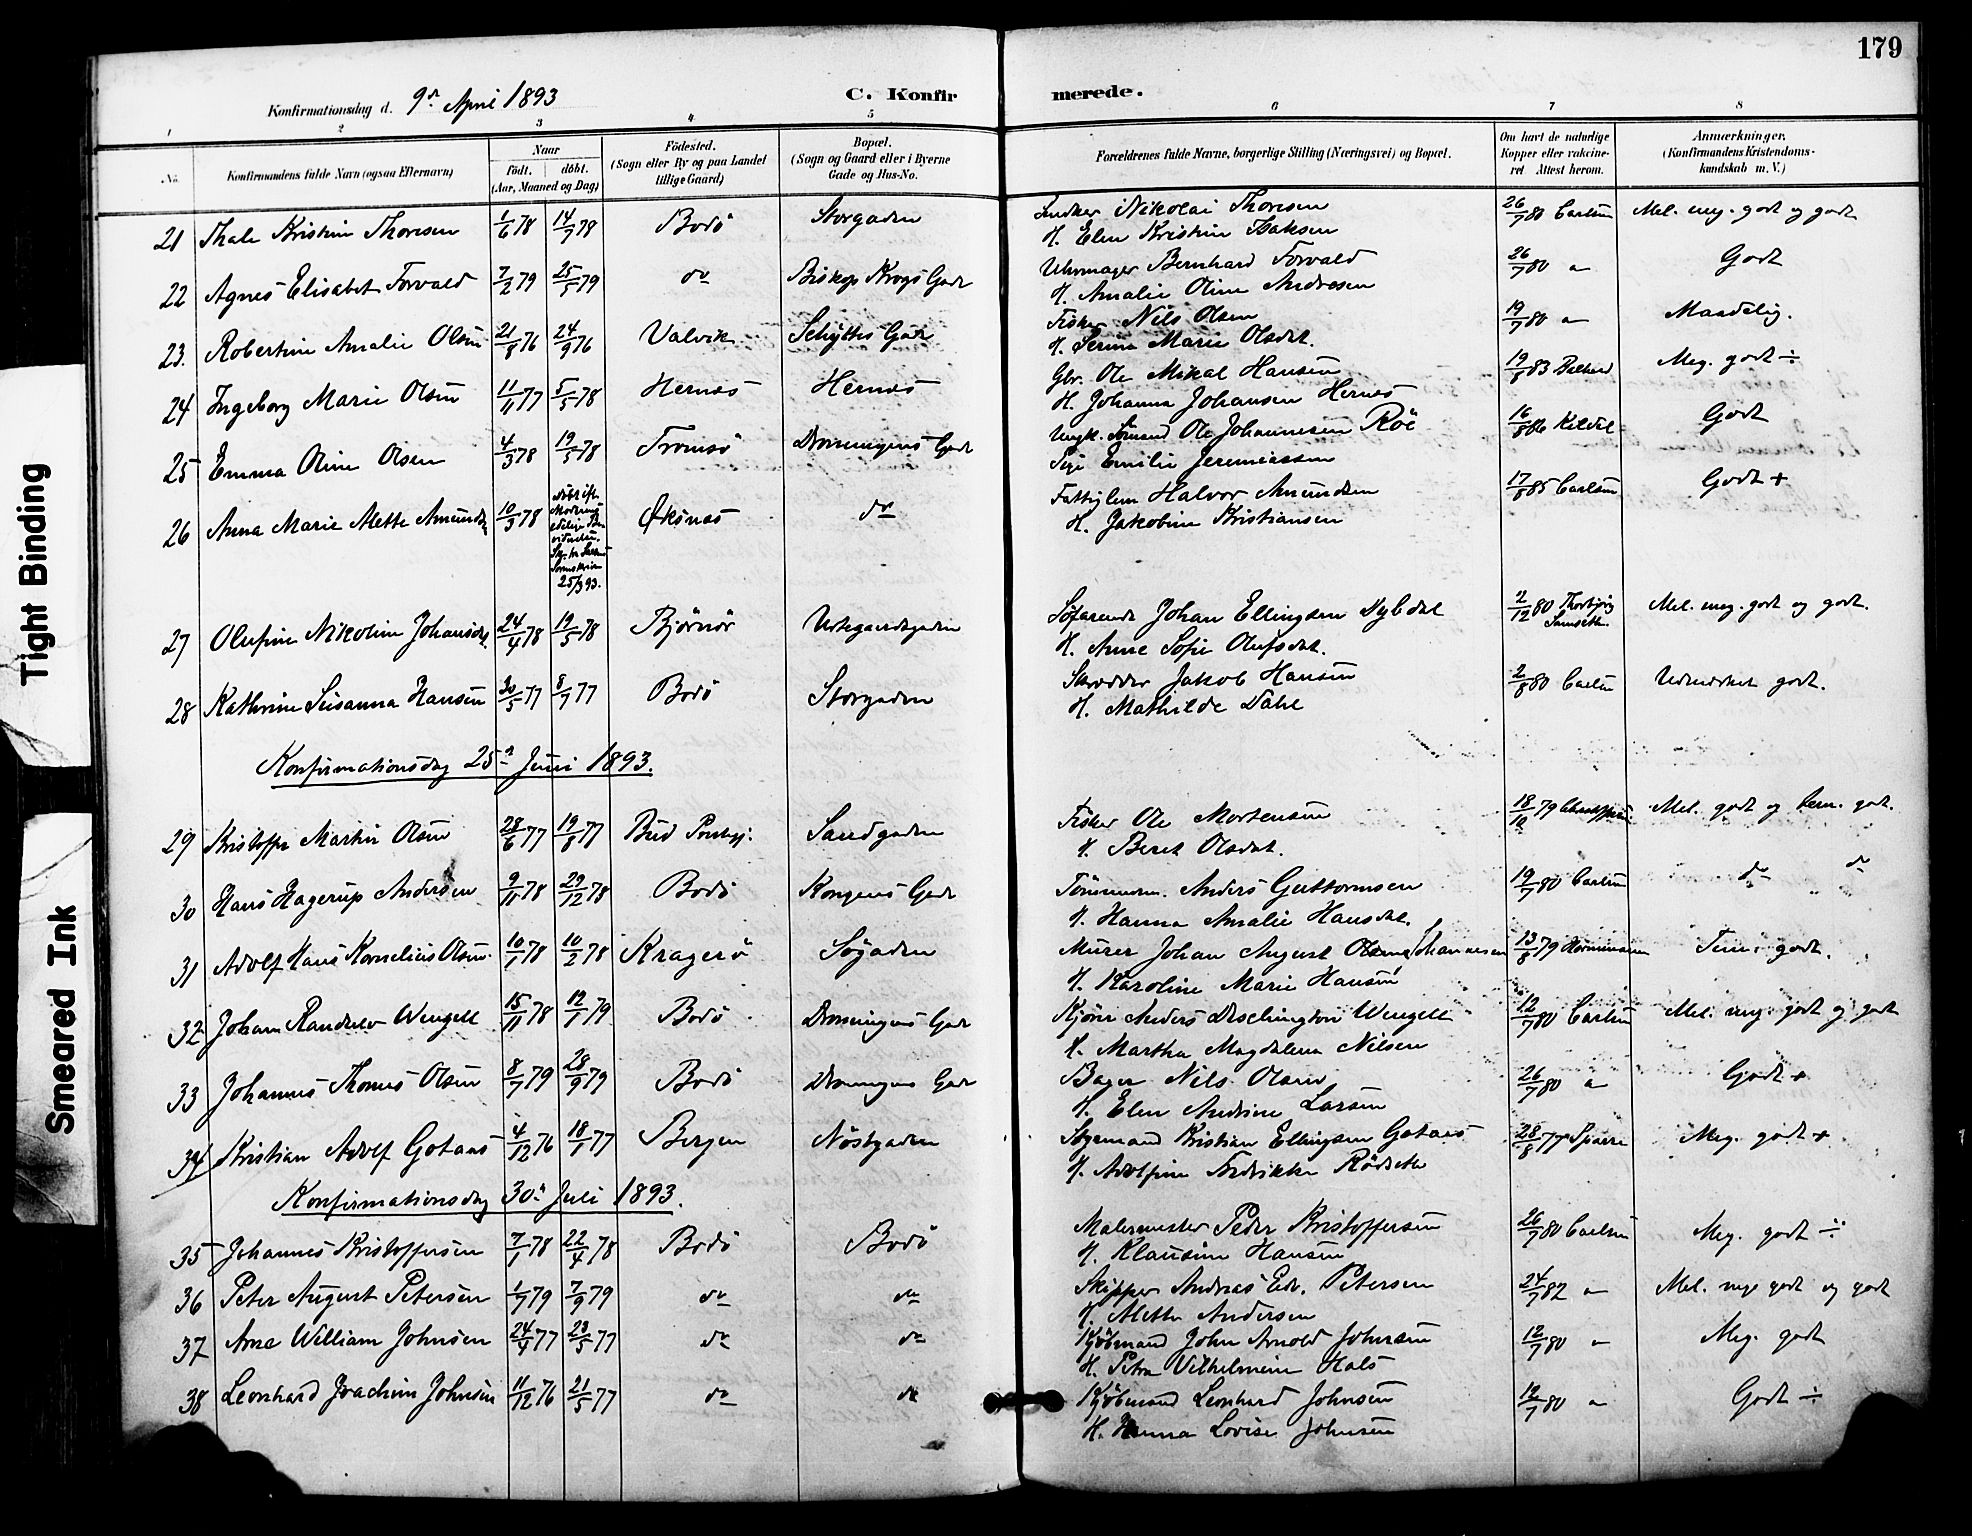 179
Konfirmationsdag d. 9de April 1893
C. Konfirmerede.
1 2 3 4 5 6 7 8
No.
Konfirmandens fulde Navn (ogsaa Efternavn)
Naar
født. døbt.
(Aar, Maaned og Dag)
Födested.
(Sogn eller By og paa Landet
tillige Gaard)
Bopæl.
(Sogn og Gaard eller i Byerne
Gade og Hus-No.
Forældrenes fulde Navne, borgerlige Stilling (Næringsvei) og Bopæl.
Om havt de naturlige
Kopper eller vakcine-
ret Attest herom.
Anmærkninger.
(Konfirmandens Kristendoms-
kundskab m. V.)
21 Thale Kristine Thoresen 1/6 78 14/7 78 Bodö Storgaden Nikolai Thoresen 26/7 80 Carlsen Mel. meg. godt og godt
H. Elen Kristine Isaksen
22 Agnes Elisabet Forvald 7/2 79 25/5 79 do Biskop Krogs Gade Uhrmager Bernhard Forvald 26/7 80 " Godt
H. Amalie Oline Andresen
23. Robertine Amalie Olsen 21/8 76 24/9 76 Valvik Schyttes Gade Fisker Nils Olsen 19/7 80 " Maadelig.
H. Serine Marie Olsdat.
24 Ingeborg Marie Olsen 11/11 77 5/5 78 Hernes Hernes Gbr. Ole Mikal Hansen 19/8 83 Meg. godt ÷
H. Johanna Johansen Hernes
25 Emma Oline Olsen 4/3 78 19/5 78 Tromsö Dronningens Gade Ungk. Sømand Ole Johannesen Röe 16/8 86 Kildal Godt
Pige Emilie Jeremiassen
26 Anna Marie Alette Amundsen 10/3 78 Øksnes do Fattiglem Halvor Amundsen 17/8 85 Carlsen Godt +
25/3 93.
H. Jakobine Kristiansen
27 Olufine Nikoline Johansdt. 24/4 78 19/5 78 Bjørnör Søfarende Johan Ellingsen Dybdal 2/12 80 Mel. meg. godt og godt.
H. Anne Sofie Olufsdat.
28 Kathrine Susanna Hansen 30/5 77 8/7 77 Bodö Storgaden Skrædder Jakob Hansen 2/8 80 Carlsen Udmerket godt.
H. Mathilde Dahl
Konfirmationsdag 25de Juni 1893.
29 Kristoffer Martin Olsen 28/6 77 19/8 77 Bud Sandgaden Fisker Ole Mortensen 18/10 79 Mel. godt og tem. godt.
H. Beret Olsdat.
30 Hans Hagerup Andersen 9/11 78 29/12 78 Bodö Kongens Gade Tømmerm. Anders Guttormsen 19/7 80 Carlsen do do
H. Hanna Amalie Hansdat.
31 Adolf Hans Kornelius Olsen 10/1 78 10/2 78 Kragerö Søgaden Murer Johan August Johannesen 13/8 79 Hermansen Tem. godt.
H. Karoline Marie Hansen
32 Johan Randulv Wengell 15/11 78 12/1 79 Bodö Dronningens Gade Anders Dischington Wengell 12/7 80 Carlsen Mel. meg. godt og godt
H. Martha Magdalena Nilsen
33 Johannes Thomas Olsen 8/7 79 28/9 79 Bodö Dronningens Gade Bager Nils Olsen 26/7 80 " Godt +
H. Elen Andrine Larsen
34 Kristian Adolf Gotaas 4/12 76 18/1 77 Bergen Nøstgaden Kristian Ellingsen Gotaas 28/8 77 Sparre Meg. godt +
H. Adolfine Fredrikke Rødseth
Konfirmationsdag 30de Juli 1893.
35 Johannes Kristoffersen 7/1 78 22/4 78 Bodö Bodö Malermester Peder Kristoffersen 26/7 80 Carlsen Meg. godt ÷
H. Klausine Hansen
36 Peter August Petersen 1/7 79 7/9 79 do do Skipper Andreas Edv. Petersen 24/7 82 " Mel. meg godt og godt
H. Alette Andersen
37 Arne William Johnsen 24/4 77 23/5 77 do do Kjøbmand John Arnold Johnsen 12/7 80 " Meg. godt
H. Petra Vilhelmine Hals
38 Leonhard Joachim Johnsen 11/12 76 21/5 77 do do Kjøbmand Leonhard Johnsen 12/7 80 " Godt ÷
H. Hanna Lovise Johnsen
Tight Binding
Smeared Ink